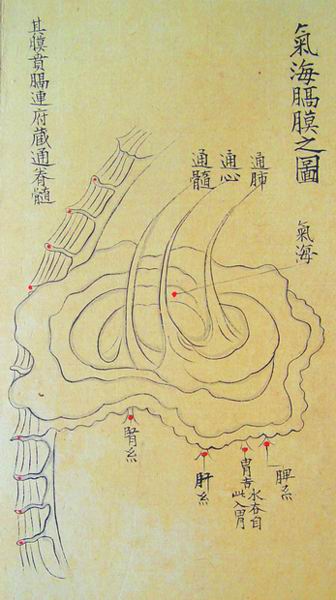 氣海膈膜之圖
通肺
通心
通髓
氣海
其膜貫膈連府藏通脊髓
脾糸
水自
此入胃
肝糸
腎糸